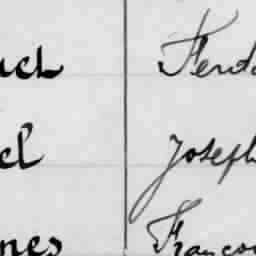 uel Ferd
el Joseph
nes Françoi